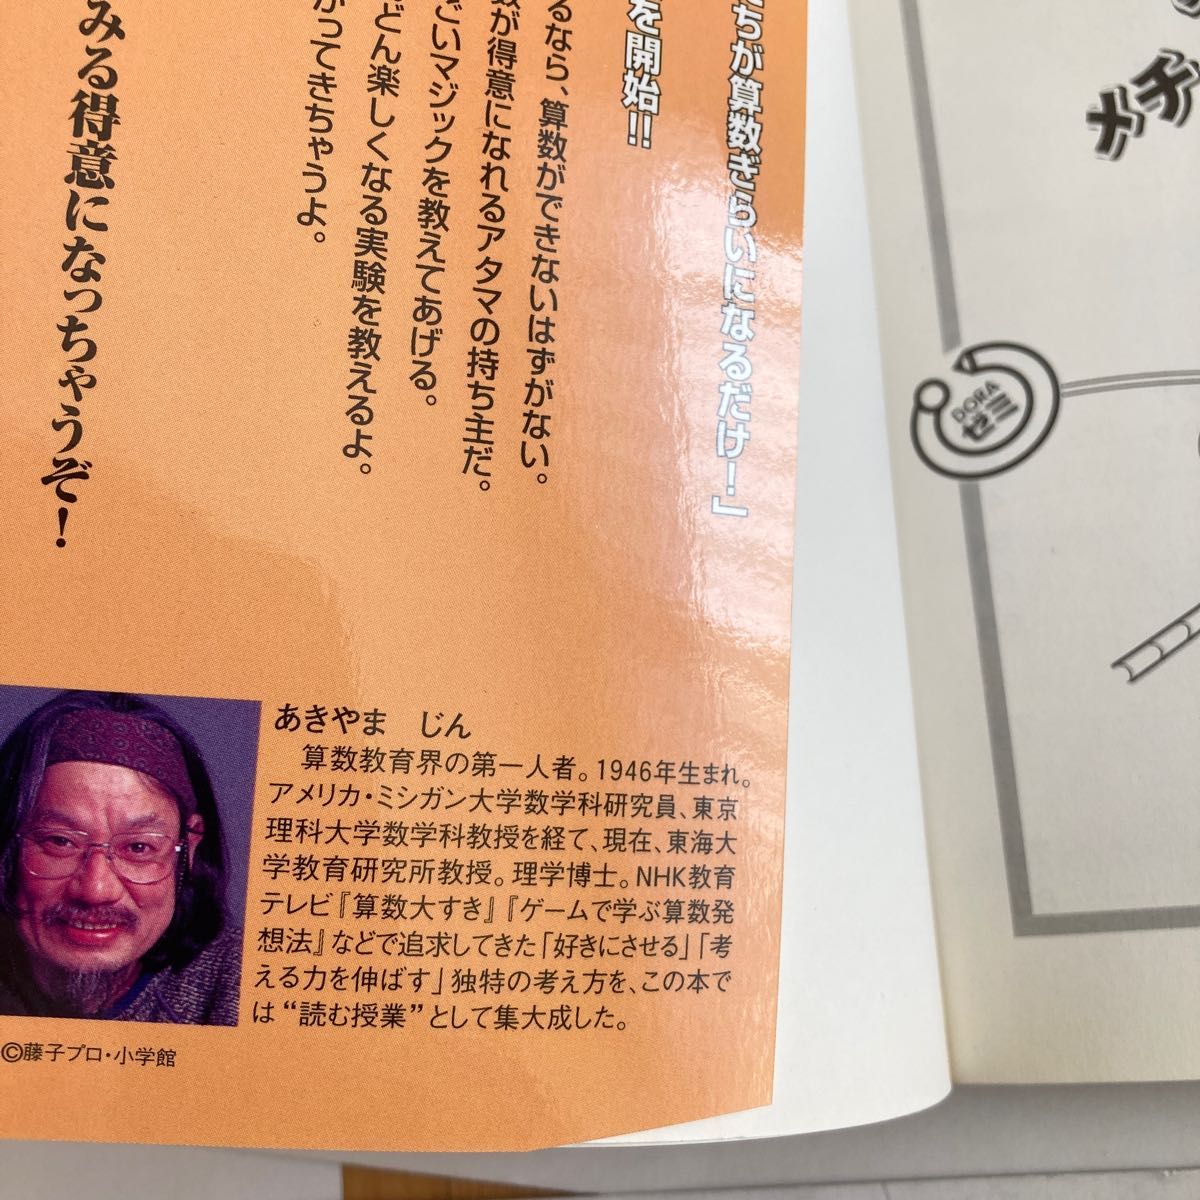 メチ
DORA
ゼミ
ちが算数ぎらいになるだけ！」
を開始!!
るなら、算数ができないはずがない。
数が得意になれるアタマの持ち主だ。
ごいマジックを教えてあげる。
どん楽しくなる実験を教えるよ。
がってきちゃうよ。
みる得意になっちゃうぞ！
あきやま　じん
算数教育界の第一人者。1946年生まれ。
アメリカ・ミシガン大学数学科研究員、東京
理科大学数学科教授を経て、現在、東海大
学教育研究所教授。理学博士。NHK教育
テレビ『算数大すき』『ゲームで学ぶ算数発
想法』などで追求してきた「好きにさせる」「考
える力を伸ばす」独特の考え方を、この本で
は“読む授業”として集大成した。
©藤子プロ・小学館